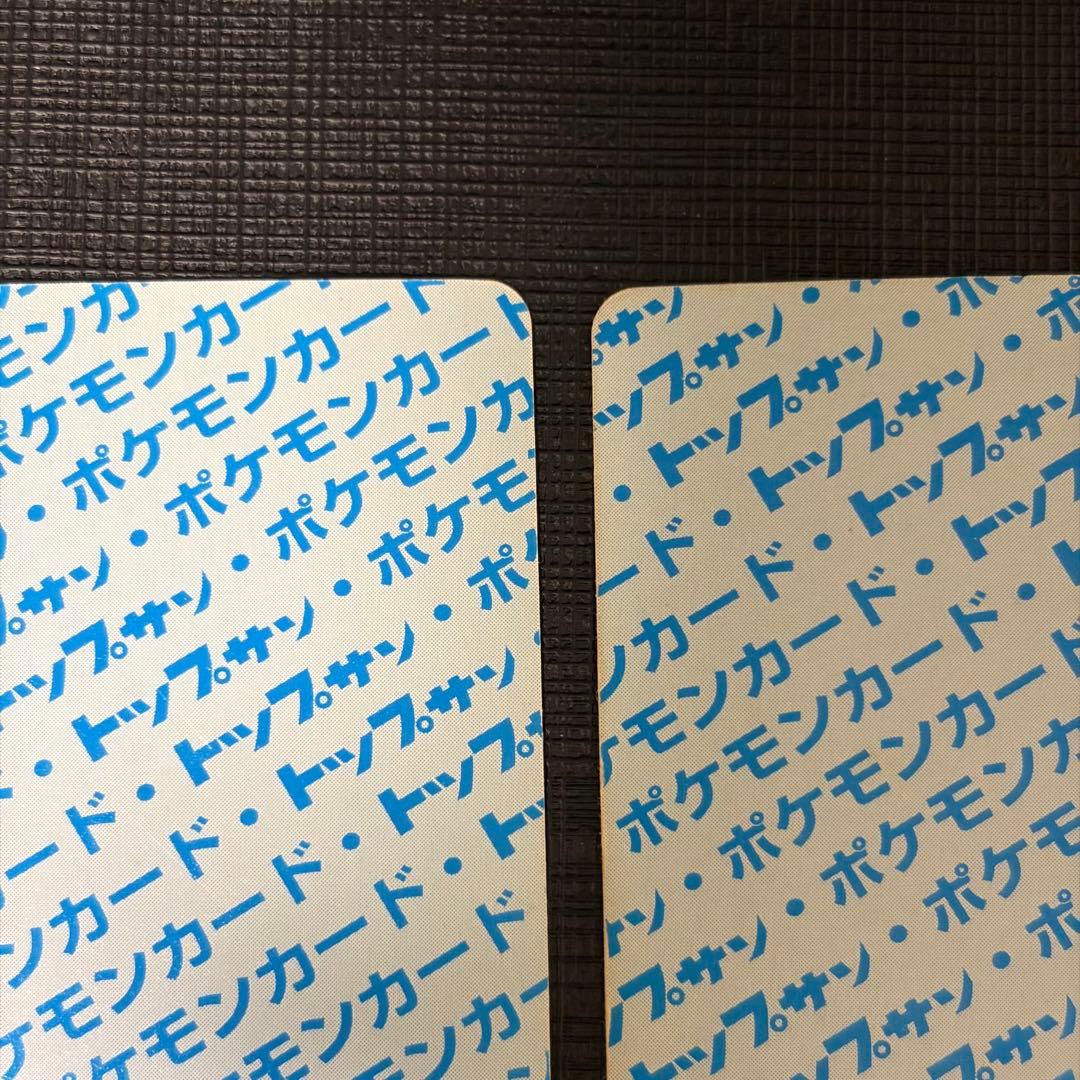 モンカ
ポケモンカー
・ポケモンカード
プサン・ポケモンカード
トップサン・ポケモンカ
・トップサン・ポケモ
ード・トップサン・ポ
ンカード・トップサン・
ケモンカード・トップ
ポケモンカード・ト
モンカー
サン
ップサン・
・トップサン・ポ
ード・トップサン・ポ
ンカード・トップサン
ケモンカード・トップ
ポケモンカード・ト
ン・ポケモンカード
プサン・ポケモンカ
トップサン・ポケモ
トップサン・ポ